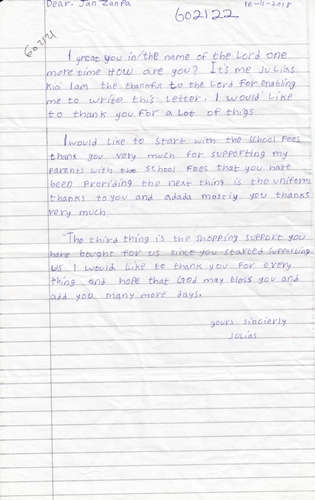 Dear. Jan Zanpa 16-4-2018
602122
60244
I great you in/the name of the Lord one
more time How are you? It's me Julias
Kioi I am the thankful to the Lord for enabling
me to write this letter. I would like
to thank you for a lot of thigs
I would like to start with the school fees
thank you very much for supporting my
parents with the school fees that you have
been providing the next thing is the uniform
thanks to you and adada mostly you thanks
very much
The third thing is the shopping support you
have bought for us since you started supporting
us I would like to thank you for every
thing and hope that God may bless you and
add you many more days.
yours sincierly
Julias